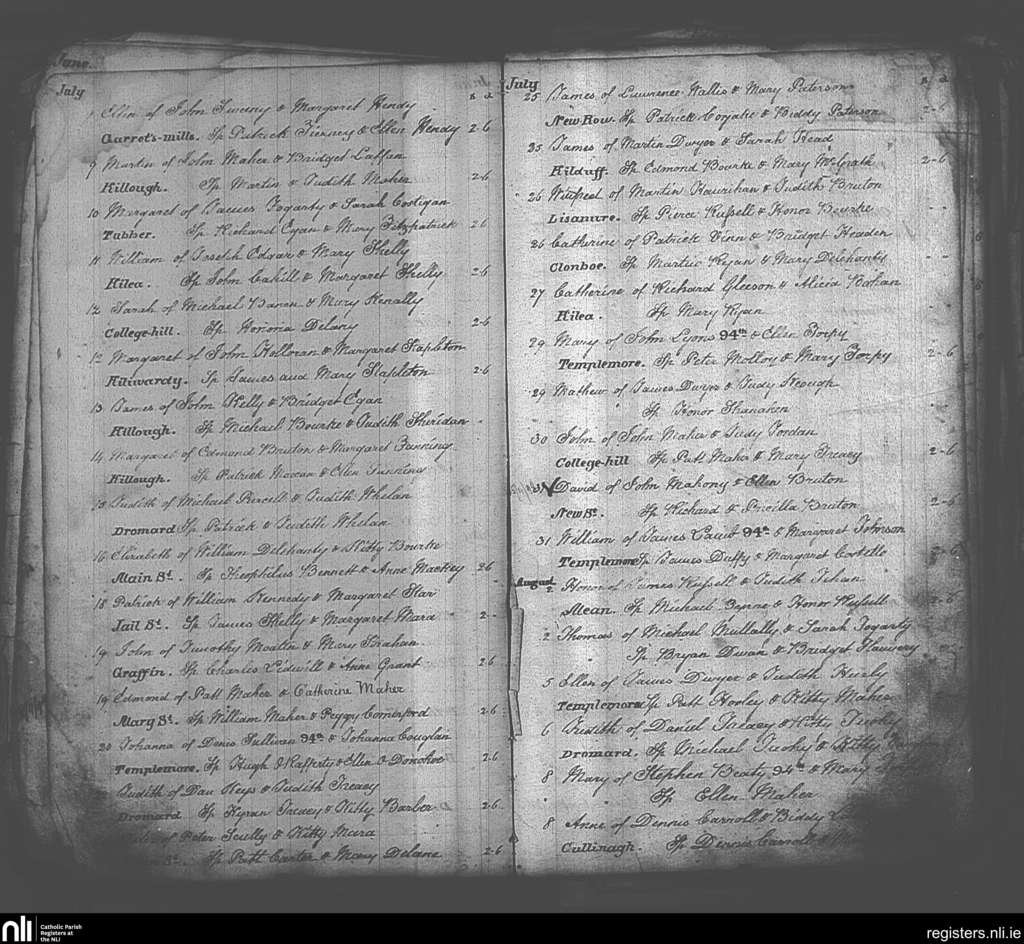 June
July
s d
1 Ellen of John Sweeny & Margaret Hendy
Garrot's-mills. Sp Patrick Tierney & Ellen Hendy 2-6
9 Martin of John Maher & Bridget Laffan
Killough. Sp Martin & Judith Maher 2-6
10 Margaret of James Fogarty & Sarah Costigan
Tubber. Sp Richard Egan & Mary Fitzpatrick 2-6
11 William of Joseph Edgar & Mary Shelly
Kilea. Sp John Cahill & Margaret Shelly 2-6
12 Sarah of Michael Baron & Mary Kenally
College-hill. Sp Honoria Delany 2-6
12 Margaret of John Holloran & Margaret Stapleton
Kiliwardy. Sp James and Mary Stapleton 2-6
13 James of John Kelly & Bridget Egan
Killough. Sp Michael Bourke & Judith Sheridan
14 Margaret of Edmond Bruton & Margaret Fanning
Killough. Sp Patrick & Ellen Fanning
15 Judith of Michael Purcell & Judith Whelan
Dromard Sp Patrick & Judith Whelan
16 Elizabeth of William Delehanty & Kitty Bourke
Main St. Sp Theophilus Bennett & Anne Mackey 2-6
18 Patrick of William Kennedy & Margaret Star
Jail St. Sp James Shelly & Margaret Mara 2-
19 John of Timothy & Mary
Graffin. Sp Charles Lidwill & Anne Grant 2-6
19 Edmond of Patt Maher & Catherine Maher
Mary St. Sp William Maher & Peggy Comerford 2-6
20 Johanna of Denis Sullivan 94th & Johanna Coughlan
Templemore. Sp Hugh O'Rafferty & Ellen O'Donohoe 2-6
Judith of Dan Keys & Judith Treacy
Dromard Sp Kyran Treacy & Kitty Barber 2-6
of Peter Scully & Kitty Mara
St. Sp Patt Carter & Mary Delane 2-6
July
s d
25 James of Lawrence Wallis & Mary Paterson
New Row. Sp Patrick & Biddy Paterson 2-6
25 James of Martin Dwyer & Sarah Head
Kilduff. Sp Edmond Bourke & Mary McGrath 2-6
26 Winifred of Martin Hourihan & Judith Bruton
Lisanure. Sp Pierce Russell & Honor Bourke
26 Catherine of Patrick & Bridget Headen
Clonboe. Sp Martin Ryan & Mary Delehanty
27 Catherine of Richard Gleeson & Alicia
Kilea. Sp Mary Ryan
29 Mary of John Lyons 94th & Ellen Torpy
Templemore. Sp Peter Molloy & Mary Torpy 2-6
29 Mathew of James Dwyer & Judy Keough
Sp Honor Shanahen
30 John of John Maher & Judy Jordan
College-hill Sp Patt Maher & Mary Treacy 2-6
David of John Mahony & Ellen Bruton
New St. Sp Richard & Pricilla Bruton 2-6
31 William of James 94th & Margaret Johnson
Templemore Sp James Duffy & Margaret Costello 2-6
August
2 Honor of James Russell & Judith Tehan
Mean. Sp Michael Byrne & Honor Russell 2-6
2 Thomas of Michael Mullally & Sarah Fogarty
Sp Bryan Dwan & Bridget
5 Ellen of James Dwyer & Judith Hurly
Templemore Sp Patt Hooley & Kitty Maher
6 Judith of Daniel Treacy & Kitty Tuohy
Dromard. Sp Michael Tuohy & Kitty
8 Mary of Stephen Beaty 94th & Mary
Sp Ellen Maher
8 Anne of Dennis Carroll & Biddy
Cullinagh. Sp Dennis Carroll &
nli
Catholic Parish
Registers at
the NLI
registers.nli.ie